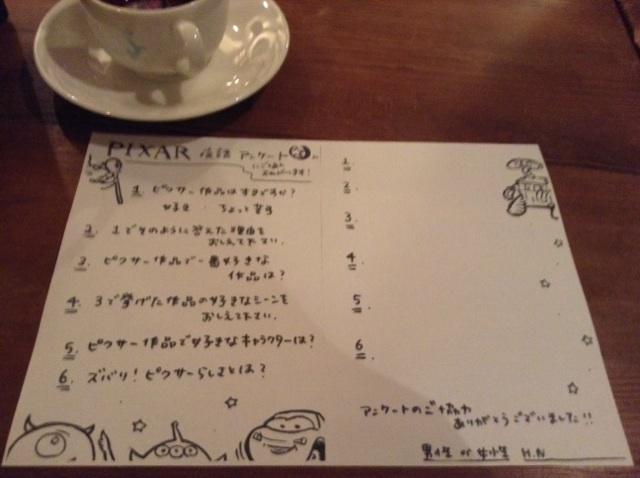 PIXAR 夜話 アンケート
にご協力
おねがいします!
1. ピクサー作品はすきですか?
好き ・ ちょっと苦手
2. 1でそのように答えた理由を
おしえて下さい.
3. ピクサー作品で一番好きな
作品は?
4. 3で挙げた作品の好きなシーンを
おしえて下さい.
5. ピクサー作品で好きなキャラクターは?
6. ズバリ!ピクサーらしさとは?
1.
2.
3.
4.
5.
6.
アンケートのご協力
ありがとうございました!!
男性 or 女性 H.N